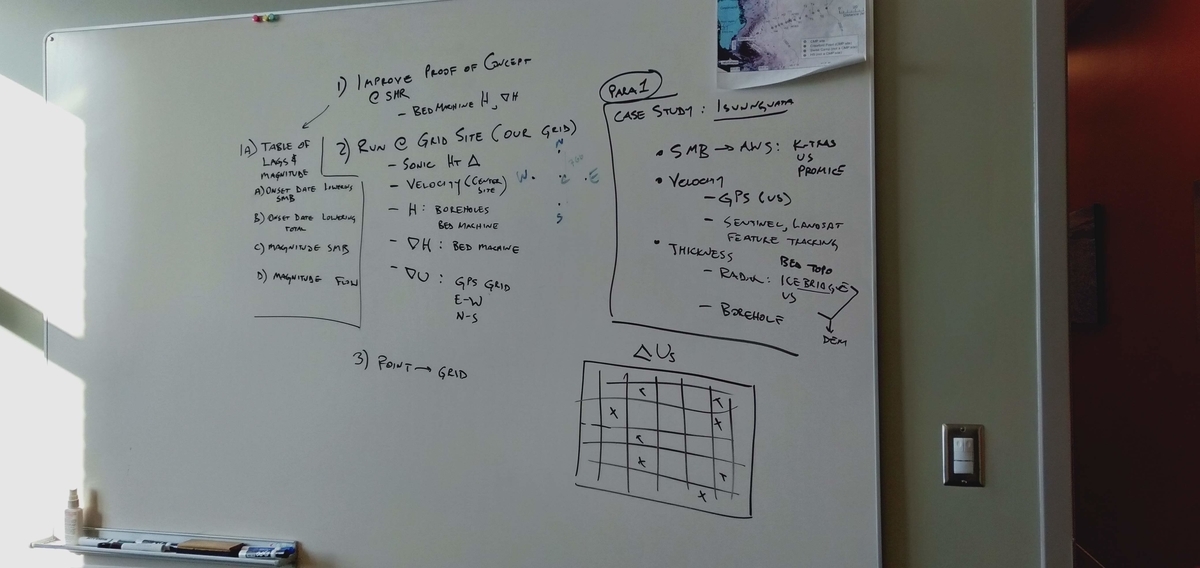 1) IMPROVE PROOF OF CONCEPT
@ SMR
- BED MACHINE H, ∇H
1A) TABLE OF
LAGS &
MAGNITUDE
A) ONSET DATE LOWERING
SMB
B) ONSET DATE LOWERING
TOTAL
C) MAGNITUDE SMB
D) MAGNITUDE FLOW
2) RUN @ GRID SITE (OUR GRID)
- SONIC HT Δ
- VELOCITY (CENTER
SITE)
- H: BOREHOLES
BED MACHINE
- ∇H: BED MACHINE
- ∇U: GPS GRID
E-W
N-S
N
W
C
E
S
3) POINT → GRID
PARA 1
CASE STUDY: ISUNNGUATA
• SMB → AWS: K-TRAS
US
PROMICE
• VELOCITY
- GPS (US)
- SENTINEL, LANDSAT
FEATURE TRACKING
• THICKNESS
BED TOPO
- RADAR: ICEBRIDGE
US
- BOREHOLE
DEM
Δ Us